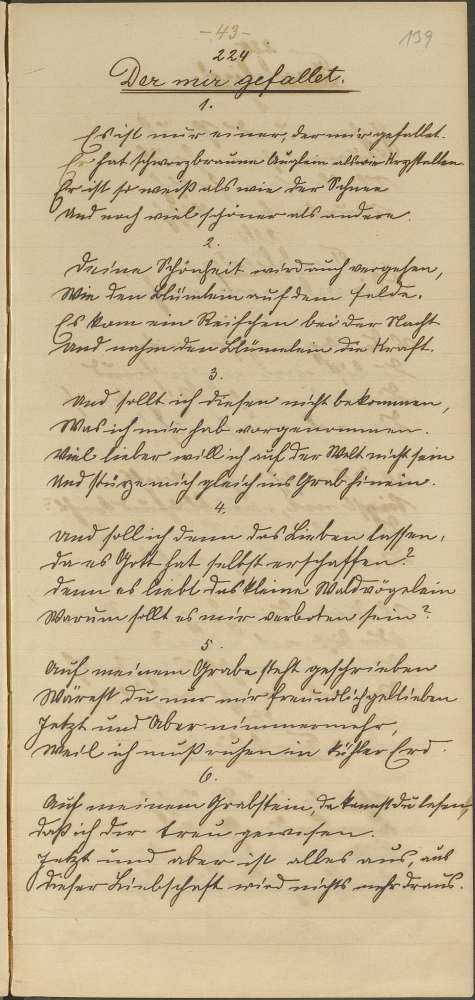 -43-
139
224
Der mir gefallet.
1.
Es ist nur einer, der mir gefallet.
Er hat schwarzbraune Äuglein als wie Krystallen
Er ist so weiß als wie der Schnee
Und noch viel schöner als andere.
2.
Deine Schönheit wird auch vergehen,
Wie den Blümlein auf dem Felde.
Es kam ein Reifchen bei der Nacht
Und nahm den Blümelein die Kraft.
3.
Und sollt ich diesen nicht bekommen,
Was ich mir hab vorgenommen.
Viel lieber will ich auf der Welt nicht sein
Und stürze mich gleich ins Grab hinein.
4.
Und soll ich denn das Lieben lassen,
Da es Gott hat selbst erschaffen?
Denn es liebt das kleine Waldvögelein
Warum sollt es mir verboten sein?
5.
Auf meinem Grabe steht geschrieben
Wärest du nur mir freundlich geblieben
Jetzt und Aber nimmermehr,
Weil ich muß ruhen in kühler Erd.
6.
Auf meinem Grabstein, da kannst du lesen,
daß ich dir treu gewesen.
Jetzt und aber ist alles aus, aus
dieser Liebschaft wird nichts mehr draus.